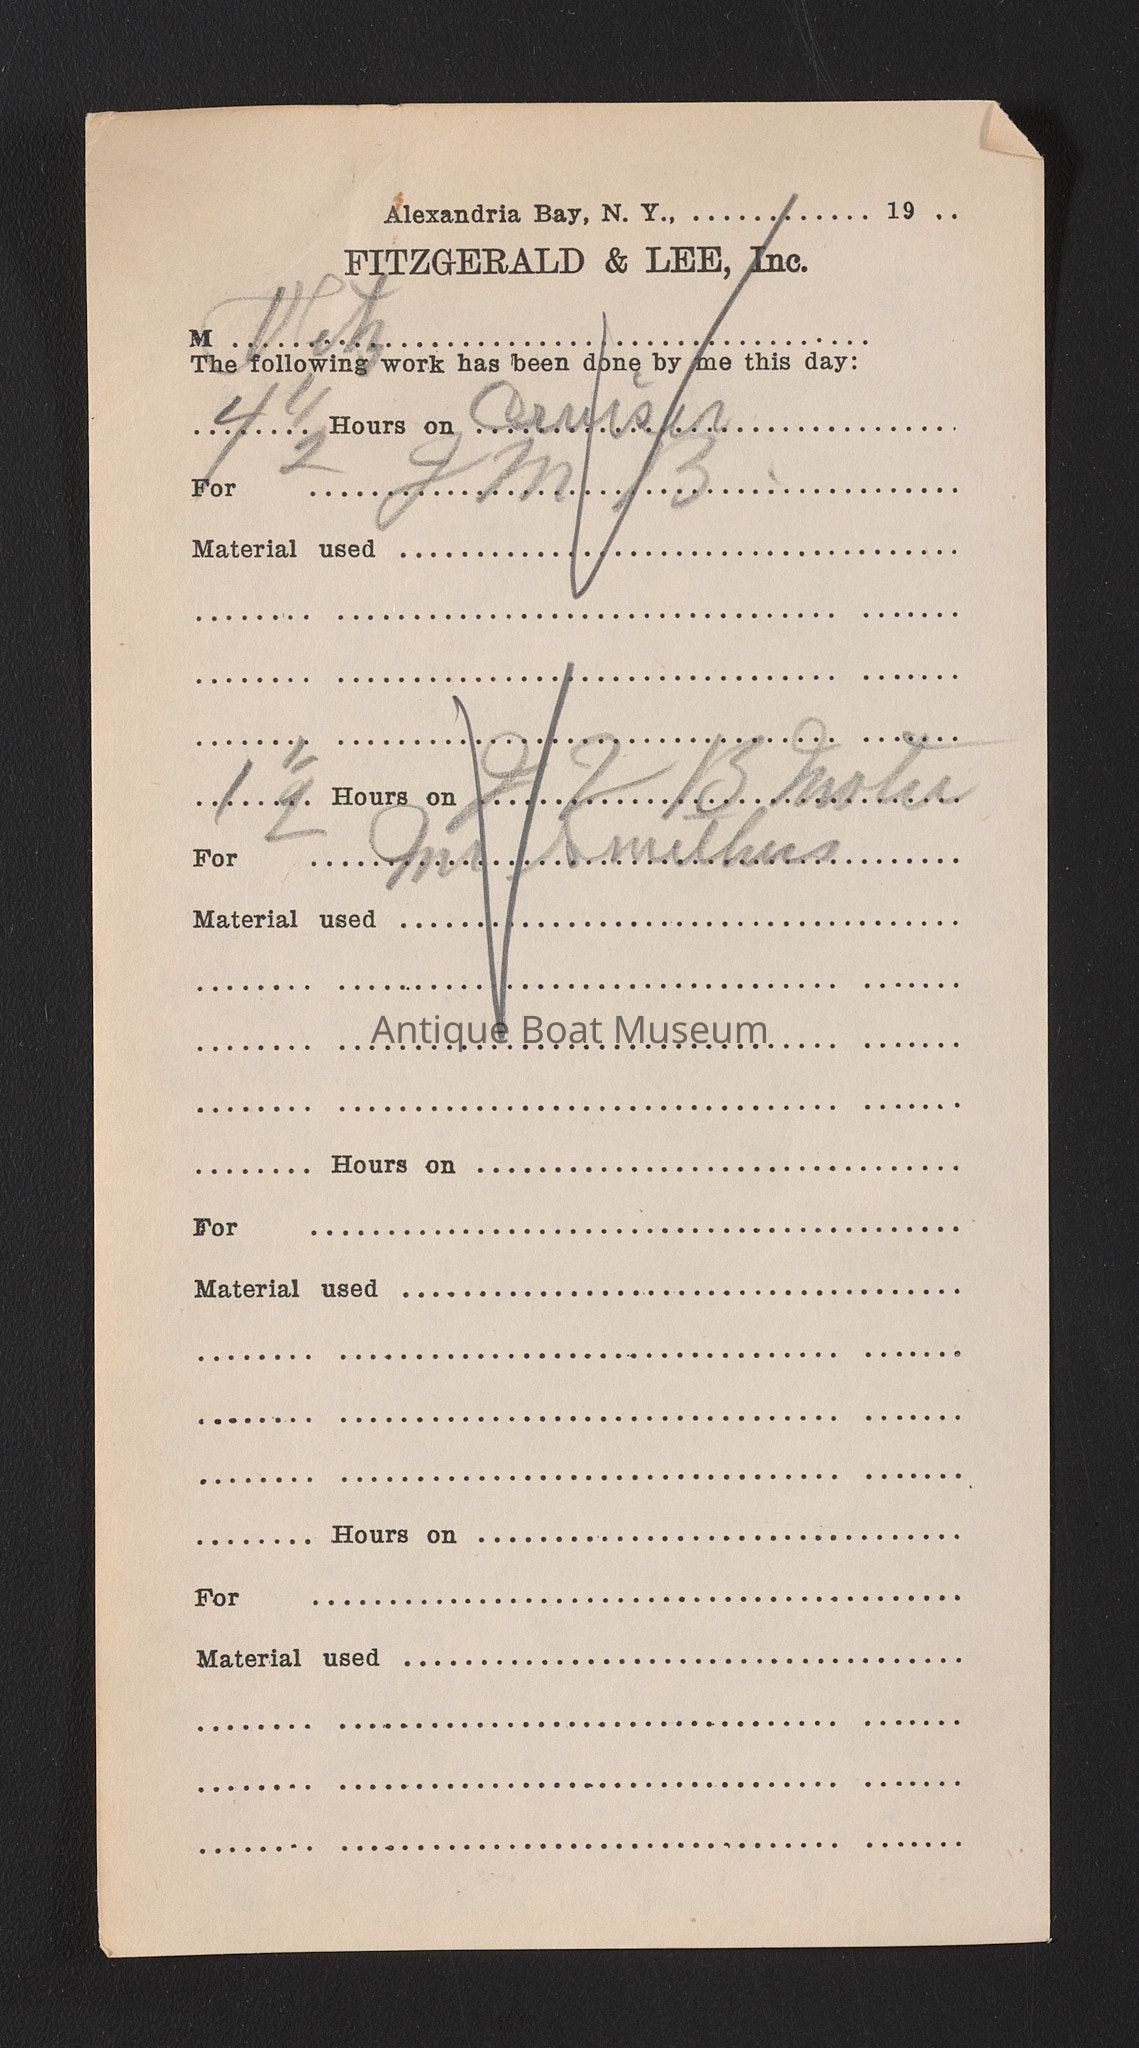 Alexandria Bay, N. Y., ............ 19 ..
FITZGERALD & LEE, Inc.
M ..........................................
The following work has been done by me this day:
4 1/2 Hours on Cruiser
For J M B
Material used ....................................
........ ................................ .......
........ ................................ .......
........ ................................ .......
1 1/2 Hours on B Motor
For Mr. Smithers
Material used ....................................
........ ................................ .......
Antique Boat Museum
........ ................................ .......
........ ................................ .......
........ Hours on ...............................
For ..........................................
Material used ....................................
........ ................................ .......
........ ................................ .......
........ ................................ .......
........ Hours on ...............................
For ..........................................
Material used ....................................
........ ................................ .......
........ ................................ .......
........ ................................ .......